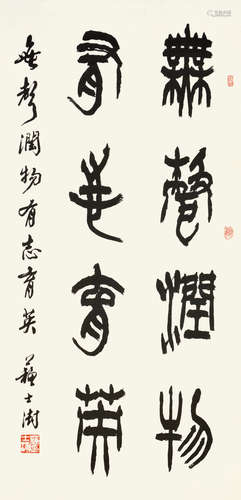 無聲潤物
有志育英
無聲潤物有志育英 蘇士澍